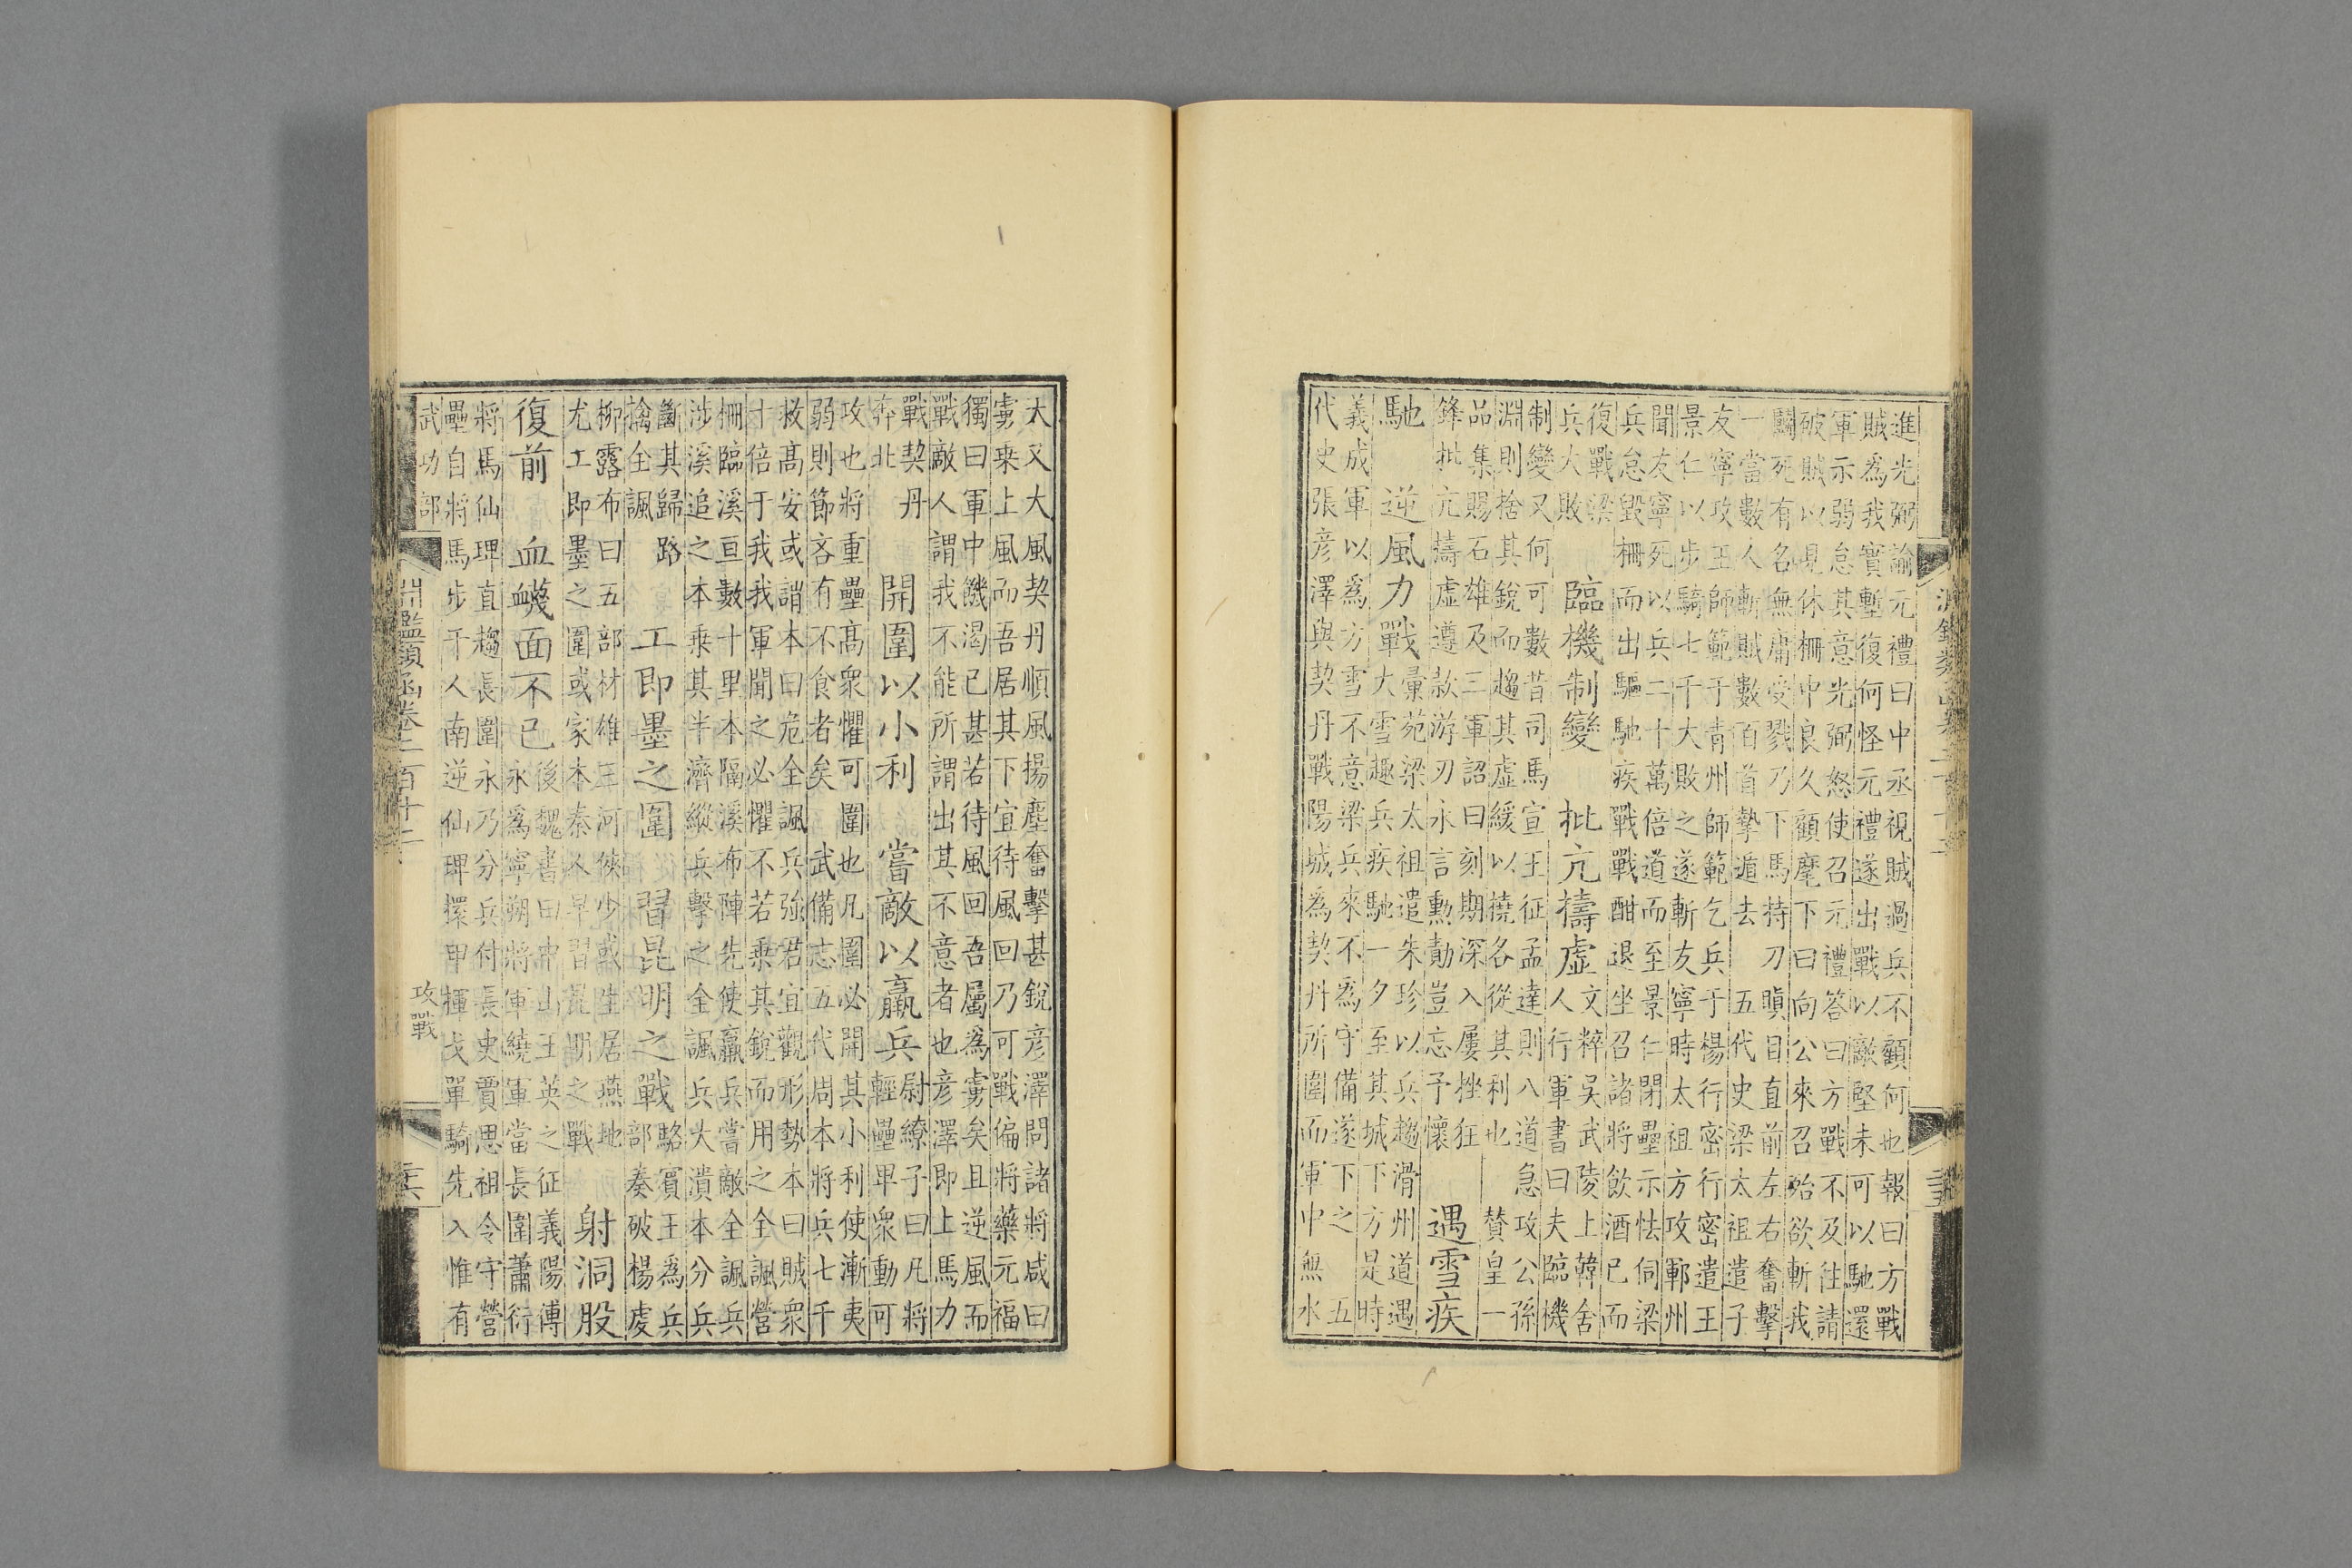 進光弼諭元禮曰中丞視賊過兵不顧何也報曰方戰
賊爲我實塹復何怪元禮遂出戰以敵堅未可以馳還
軍示弱怠其意光弼怒使召元禮答曰方戰不及往請
破賊以見休柵中良久顧麾下曰向公來召殆欲斬我
鬭死有名無庸受戮乃下馬持刀瞋目直前左右奮擊
一當數人斬賊數百首摯遁去 五代史梁太祖遣子
友寧攻王師範于青州師範乞兵于楊行密行密遣王
景仁以步騎七千大敗之遂斬友寧時太祖方攻鄆州
聞友寧死以兵二十萬倍道而至景仁閉壘示怯伺梁
兵怠毀柵而出驅馳疾戰戰酣退坐召諸將飲酒已而
復戰梁
兵大敗
臨機制變 批亢擣虛
文粹吳武陵上韓舍
人行軍書曰夫臨機
制變又何可數昔司馬宣王征孟達則八道急攻公孫
淵則捨其銳而趨其虛緩以撓各從其利也 賛皇一
品集賜石雄及三軍詔曰刻期深入屢挫狂
鋒批亢擣虛遵款游刃永言勳勣豈忘予懷
遇雪疾
馳 逆風力戰
彚苑梁太祖遣朱珍以兵趨滑州道遇
大雪趣兵疾馳一夕至其城下方是時
義成軍以爲方雪不意梁兵來不爲守備遂下之 五
代史張彥澤與契丹戰陽城爲契丹所圍而軍中無水
大又大風契丹順風揚塵奮擊甚銳彥澤問諸將咸曰
虜乘上風而吾居其下宜待風回乃可戰偏將藥元福
獨曰軍中饑渴已甚若待風回吾屬爲虜矣且逆風而
戰敵人謂我不能所謂出其不意者也彥澤即上馬力
戰契丹
奔北
開圍以小利 當敵以羸兵
尉繚子曰凡將
輕壘卑衆動可
攻也將重壘高衆懼可圍也凡圍必開其小利使漸夷
弱則節吝有不食者矣 武備志五代周本將兵七千
救高安或誚本曰危全諷兵強君宜觀形勢本曰賊衆
十倍于我我軍聞之必懼不若乘其銳而用之全諷營
柵臨溪亘數十里本隔溪布陣先使羸兵嘗敵全諷兵
涉溪追之本乘其半濟縱兵擊之全諷兵大潰本分兵
斷其歸路
擒全諷
工即墨之圍 習昆明之戰
駱賓王爲兵
部奏破楊虔
柳露布曰五部材雄三河俠少或生居燕地
尤工即墨之圍或家本秦人早習昆明之戰
射洞股
復前 血衊面不已
後魏書曰中山王英之征義陽傅
永爲寧朔將軍繞軍當長圍蕭衍
將馬仙琕直趨長圍永乃分兵付長史賈思祖令守營
壘自將馬步千人南逆仙琕擐甲揮戈單騎先入惟有
武功部
淵鑑類函卷二百十二 攻戰